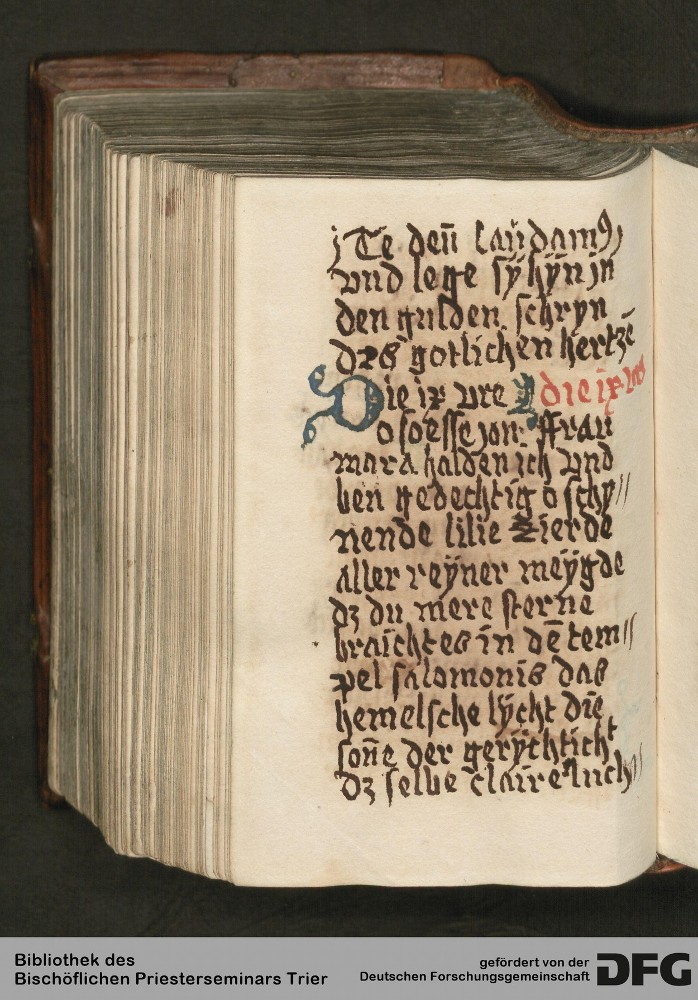 j Te deū laudam9
vnd lege sÿ hÿn jn
den gulden schryn
dʒs gotlichen hertzē
Die ix vre die ix vre
O soesse jon ffrau
mara halden ich vnd
ben gedechtig o schy//
nende lilie zierde
aller reÿner meÿgde
dʒ du mere sterne
braichtes in dē tem//
pel salomonis das
hemelsche lÿcht die
soñe der gerÿchticht
dʒ selbe claire luch//
Bibliothek des
Bischöflichen Priesterseminars Trier
gefördert von der
Deutschen Forschungsgemeinschaft
DFG